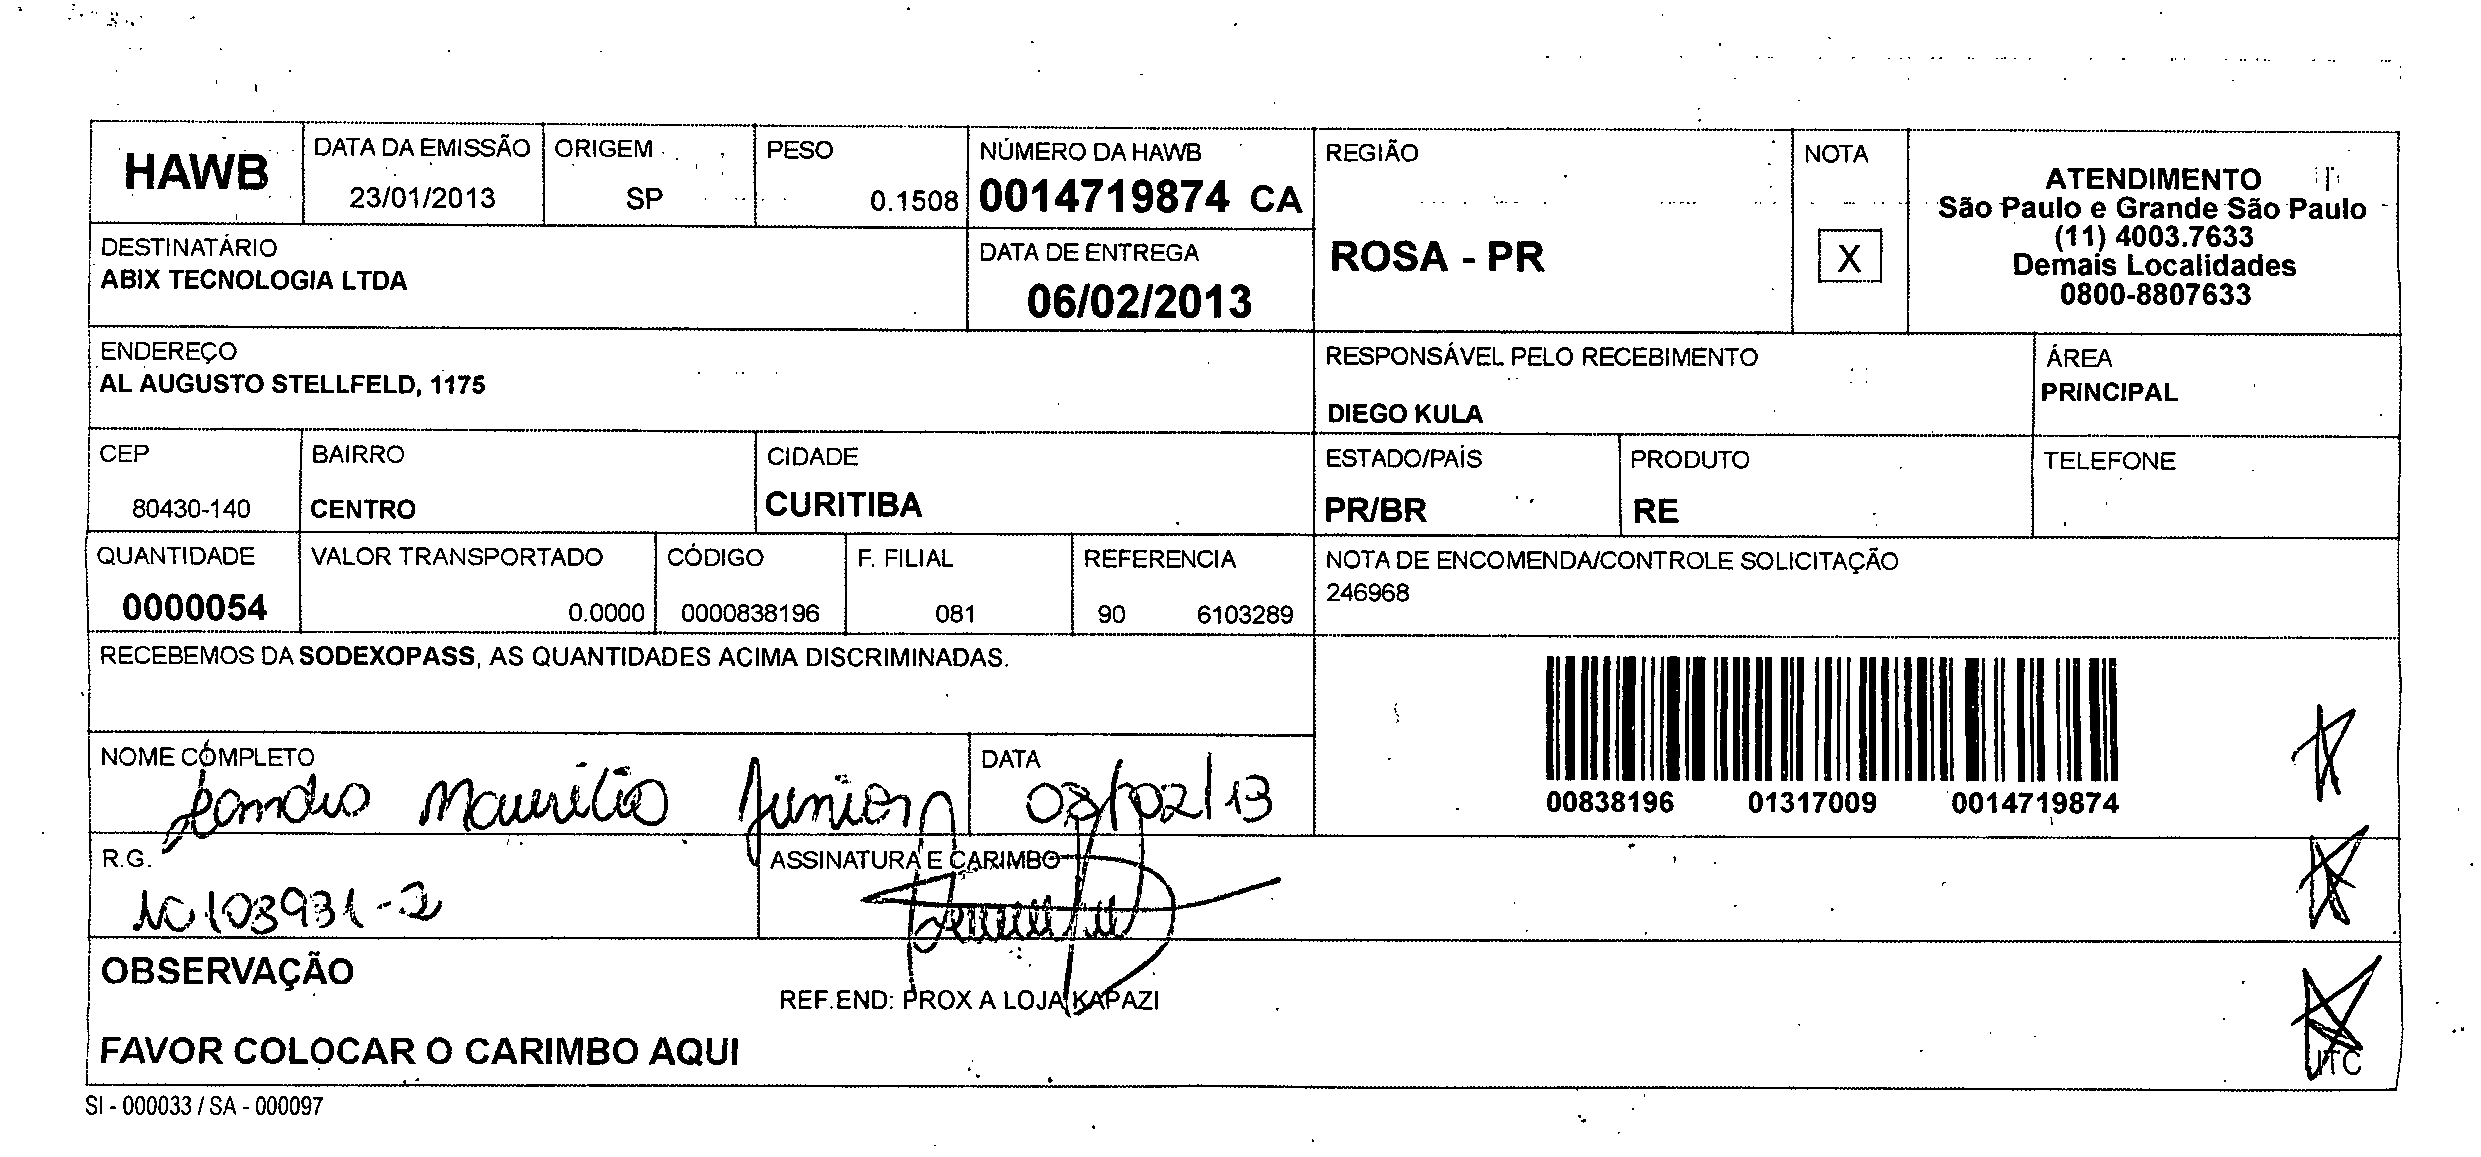 HAWB
DATA DA EMISSÃO
23/01/2013
ORIGEM
SP
PESO
0.1508
NÚMERO DA HAWB
0014719874 CA
REGIÃO
ROSA - PR
NOTA
X
ATENDIMENTO
São Paulo e Grande São Paulo
(11) 4003.7633
Demais Localidades
0800-8807633
DESTINATÁRIO
ABIX TECNOLOGIA LTDA
DATA DE ENTREGA
06/02/2013
ENDEREÇO
AL AUGUSTO STELLFELD, 1175
RESPONSÁVEL PELO RECEBIMENTO
DIEGO KULA
ÁREA
PRINCIPAL
CEP
80430-140
BAIRRO
CENTRO
CIDADE
CURITIBA
ESTADO/PAÍS
PR/BR
PRODUTO
RE
TELEFONE
QUANTIDADE
0000054
VALOR TRANSPORTADO
0.0000
CÓDIGO
0000838196
F. FILIAL
081
REFERENCIA
90 6103289
NOTA DE ENCOMENDA/CONTROLE SOLICITAÇÃO
246968
RECEBEMOS DA SODEXOPASS, AS QUANTIDADES ACIMA DISCRIMINADAS.
00838196 01317009 0014719874
NOME COMPLETO
Leandro Maurilio Junior
DATA
/02/13
R.G.
10103931-2
ASSINATURA E CARIMBO
OBSERVAÇÃO
REF.END: PROX A LOJA KAPAZI
FAVOR COLOCAR O CARIMBO AQUI
JTC
SI - 000033 / SA - 000097